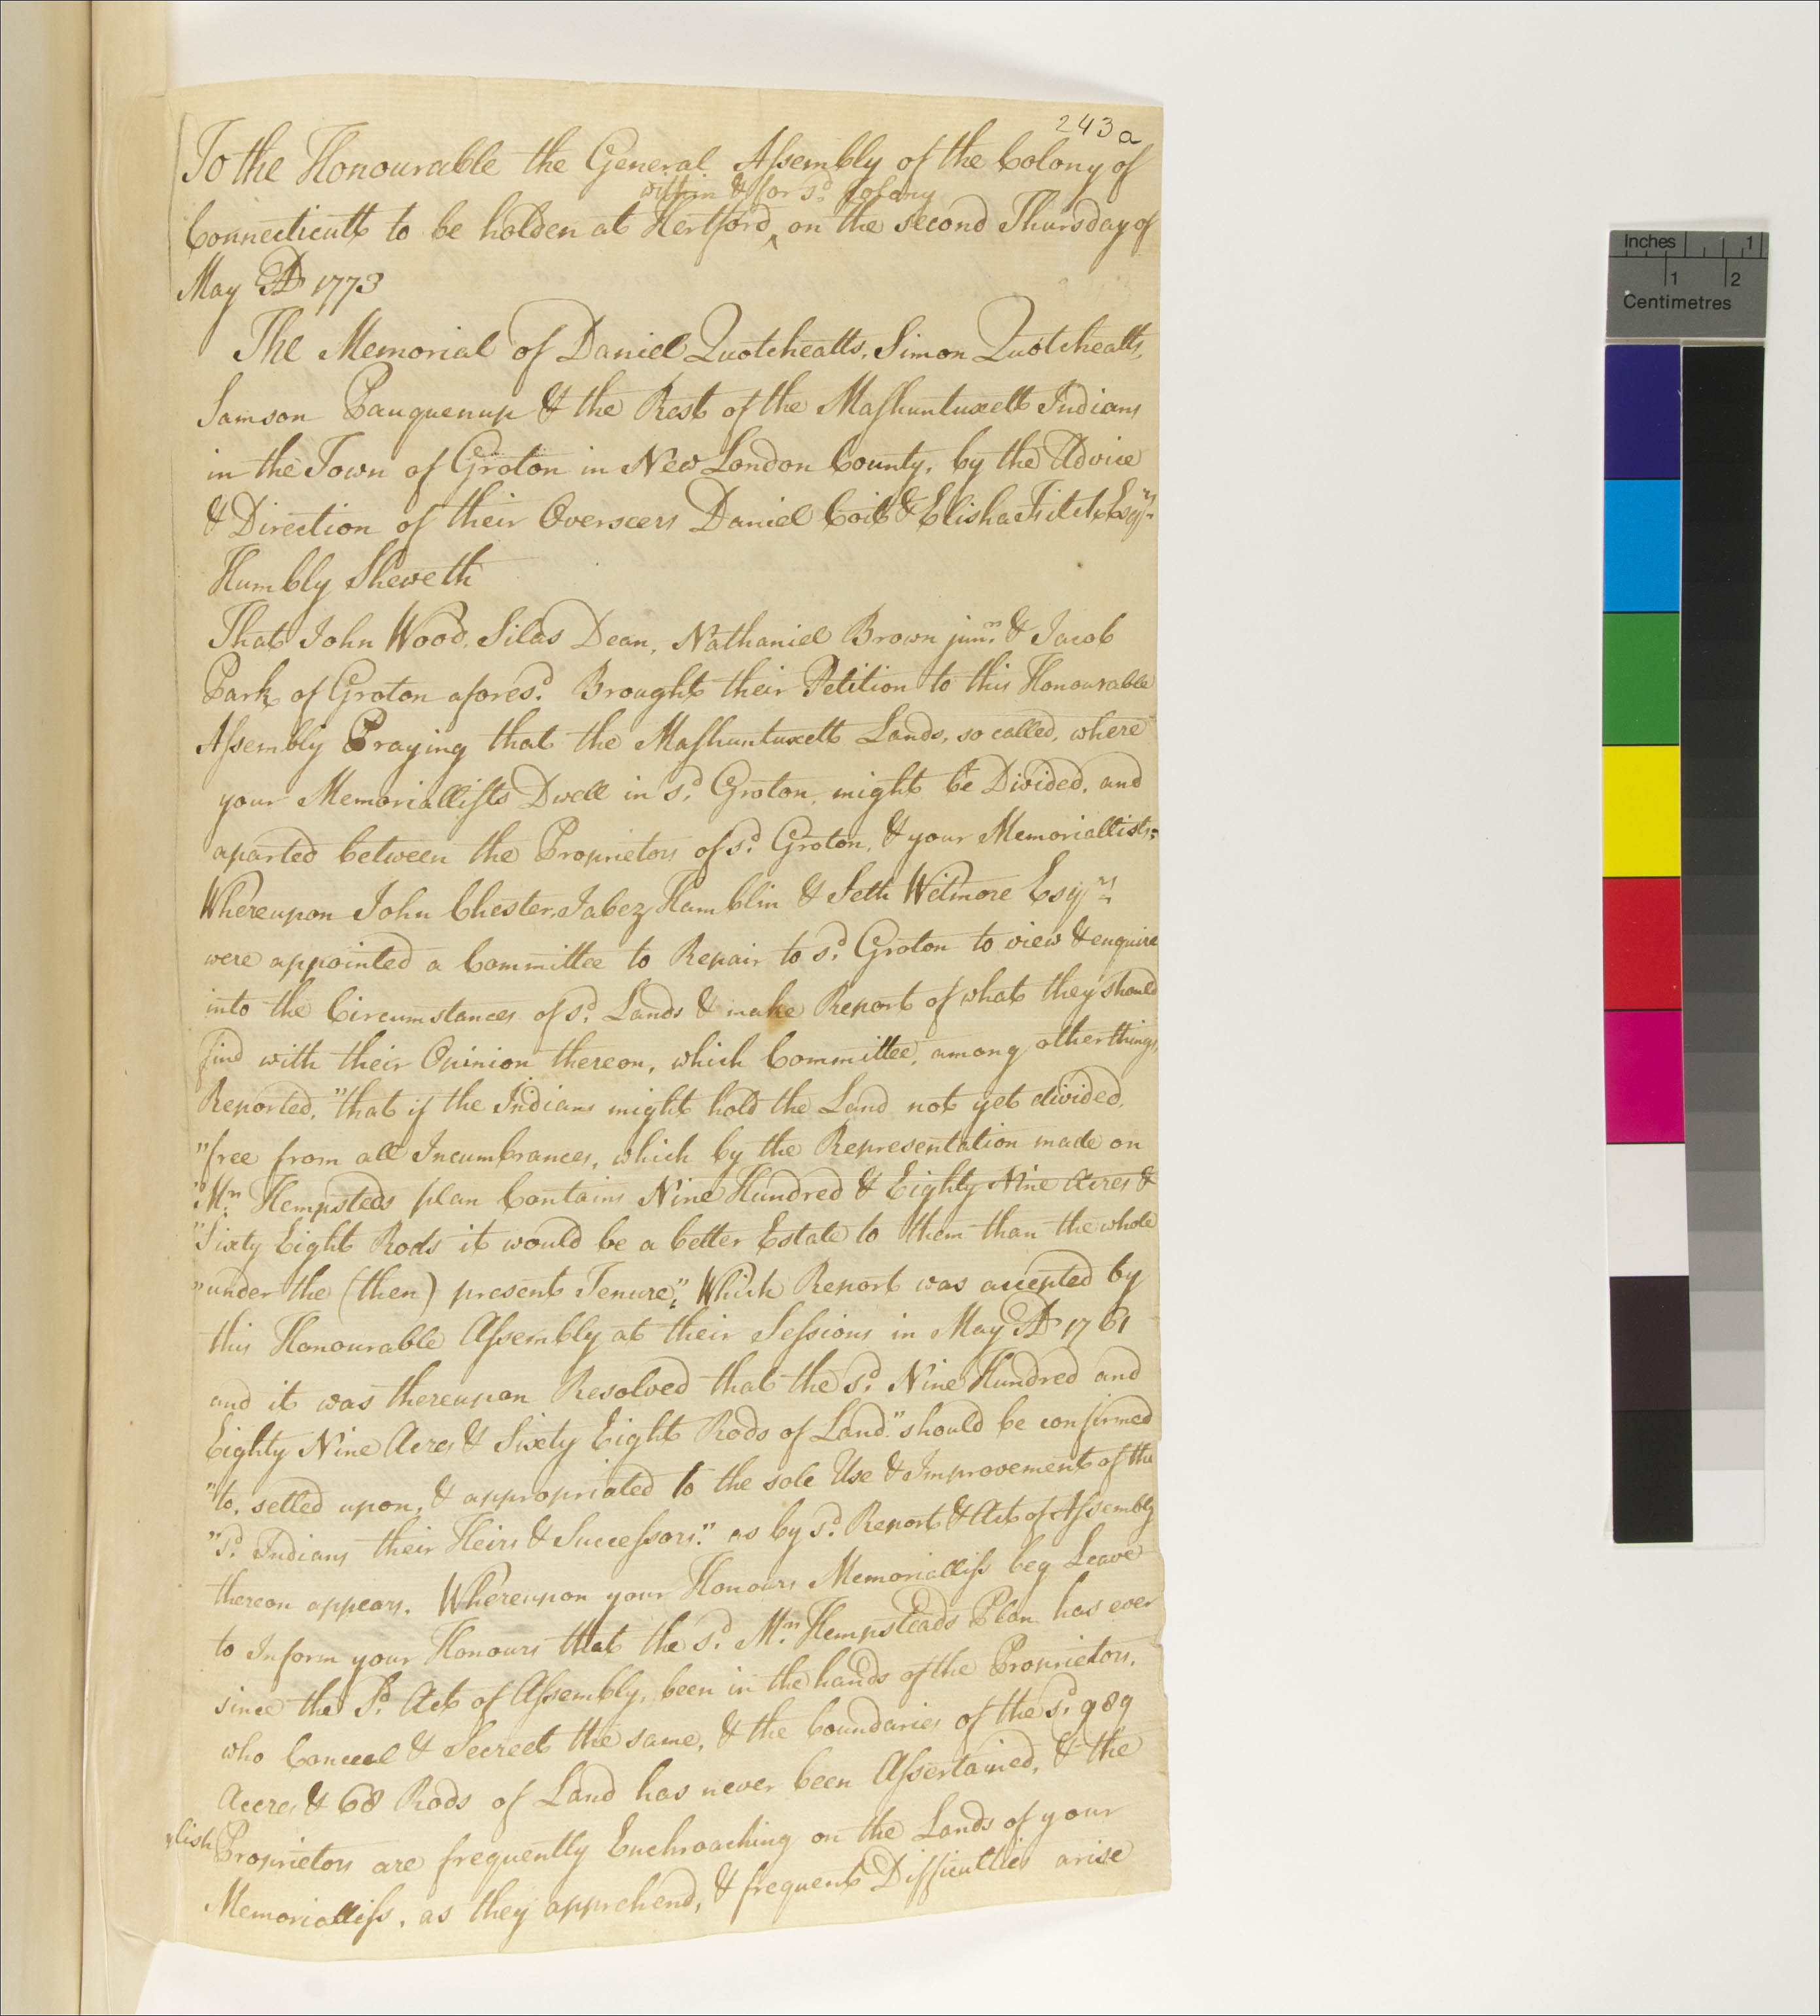 243a
To the Honourable the General Assembly of the Colony of
within & for sd. Colony
Connecticutt to be holden at Hertford ‸ on the second Thursday of
May AD 1773
The Memorial of Daniel Quotcheatts, Simon Quotcheatts,
Samson Pauquenup & the Rest of the Mashuntuxett Indians
in the Town of Groton in New London County, by the Advice
& Direction of their Overseers Daniel Coit & Elisha Fitch Esqrs.
Humbly Sheweth
That John Wood, Silas Dean, Nathaniel Brown junr. & Jacob
Park of Groton aforesd. Brought their Petition to this Honourable
Assembly Praying that the Mashuntuxett Lands, so called, where
your Memoriallists Dwell in sd. Groton, might be Divided, and
aparted between the Proprietors of sd. Groton, & your Memoriallists:
Whereupon John Chester, Jabez Hamblin & Seth Wetmore Esqrs.
were appointed a Committee to Repair to sd. Groton to view & enquire
into the Circumstances of sd. Lands & make Report of what they should
find with their Opinion thereon, which Committee, among other things,
Reported, "that if the Indians might hold the Land not yet divided,
"free from all Incumbrances, which by the Representation made on
"Mr. Hempsteds plan Contains Nine Hundred & Eighty Nine Acres &
"Sixty Eight Rods it would be a better Estate to them than the whole
"under the (then) present Tenure". Which Report was accepted by
this Honourable Assembly at their Sessions in May AD 1761
and it was thereupon Resolved that the sd. Nine Hundred and
Eighty Nine Acres & Sixty Eight Rods of Land "should be confirmed
"to, setled upon, & appropriated to the sole Use & Improvement of the
"sd. Indians their Heirs & Successors." as by sd. Report & Act of Assembly
thereon appears. Whereupon your Honours Memorialliss beg Leave
to Inform your Honours that the sd. Mr. Hempsteads Plan has ever
since the sd. Act of Assembly, been in the hands of the Proprietors,
who Conceal & Secreet the same, & the boundaries of the sd. 989
Accres & 68 Rods of Land has never been Assertained, & the
lish Proprietors are frequently Enchroaching on the Lands of your
Memorialliss, as they apprehend, & frequent Difficulties arise
Inches 1
1 2
Centimetres